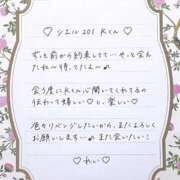 シエル 201 Kくん♡
ずっと前から約束してて…やっと会え
たね〜待ってたよ〜♪
会う度にKくん♡開いてくれてるの
伝わって嬉しい♡し、楽しい♡
色々リベンジしたいから、またよろしく
お願いします…♪また会いたい！
♡れい♡